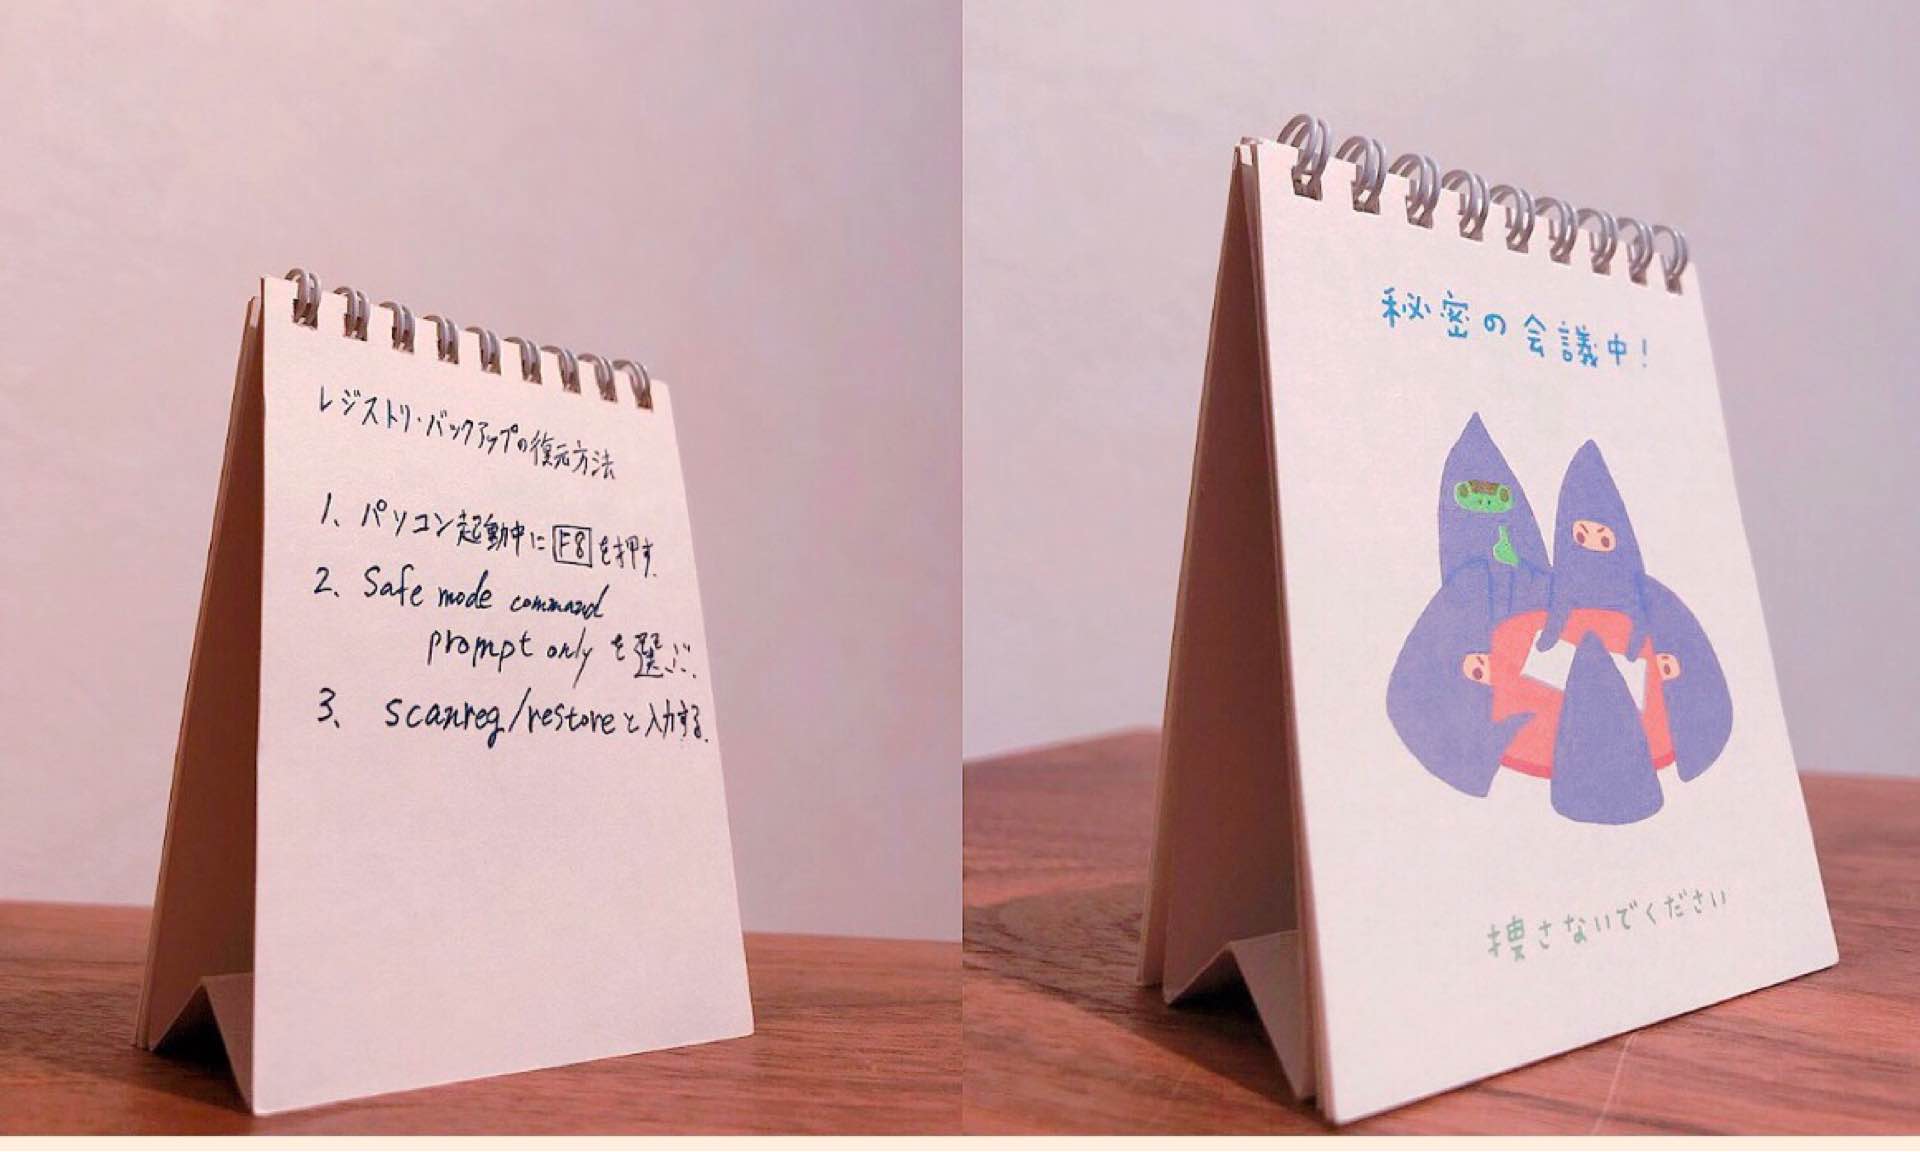 レジストリ・バックアップの復元方法
1、パソコン起動中にF8を押す.
2、Safe mode command
prompt onlyを選ぶ.
3、scanreg/restoreと入力する.
秘密の会議中!
捜さないでください